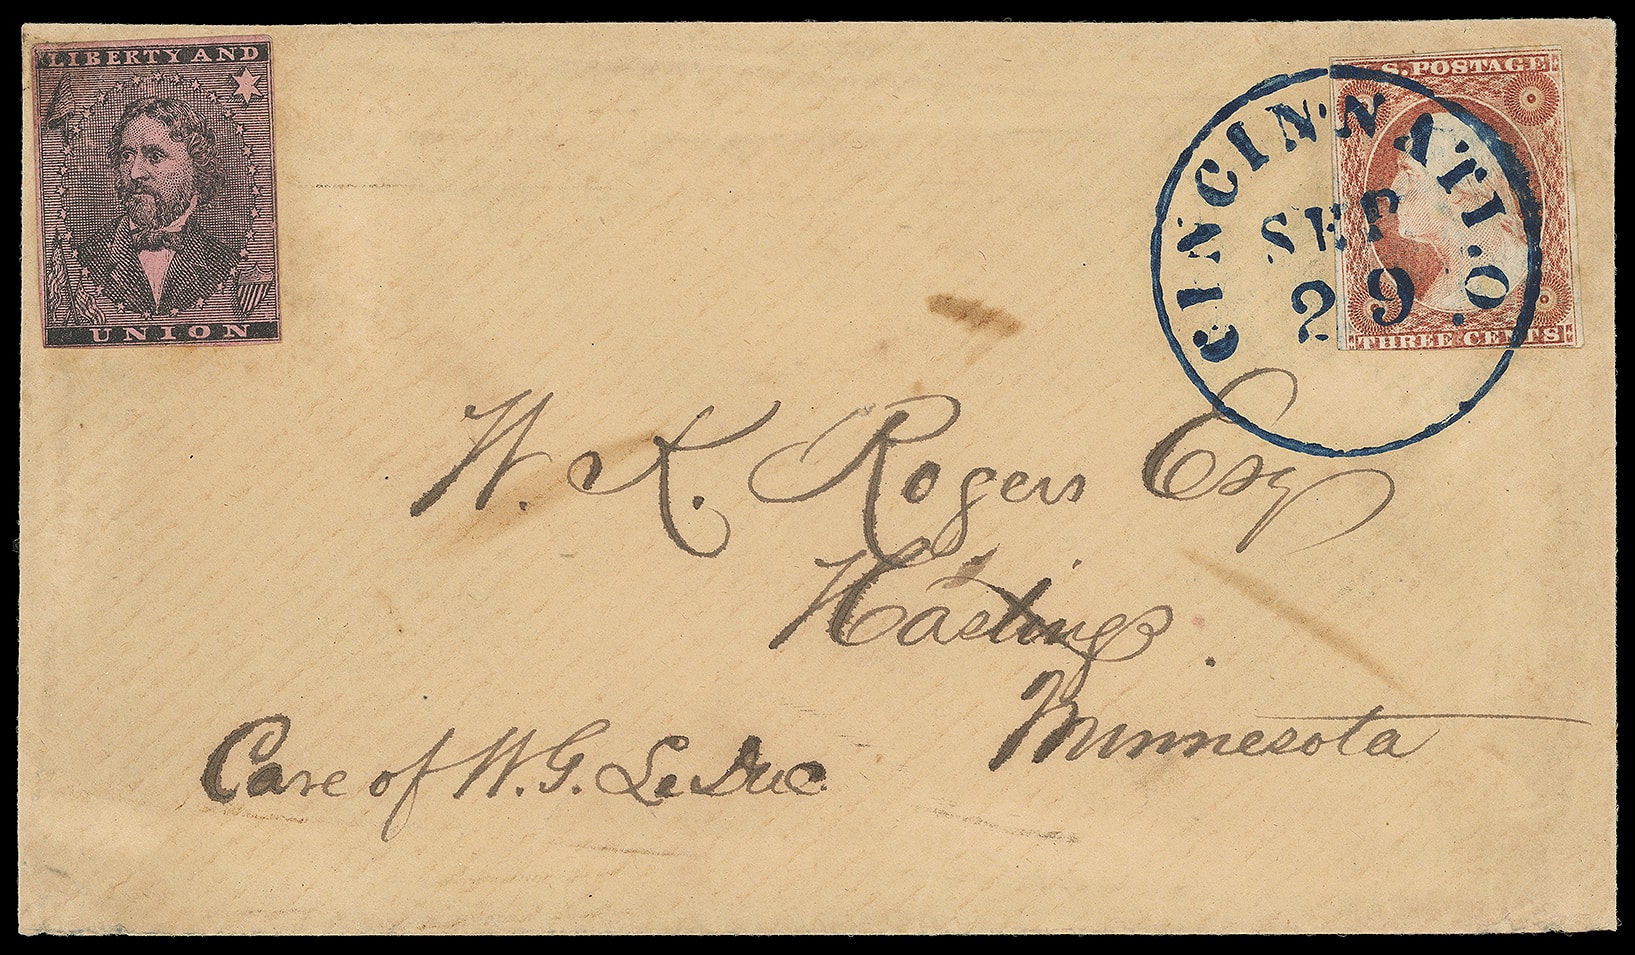 LIBERTY AND
UNION
U.S. POSTAGE
THREE CENTS
CINCINNATI. O.
SEP
29
W. K. Rogers Esq
Hastings.
Minnesota
Care of W. G. LeDuc.